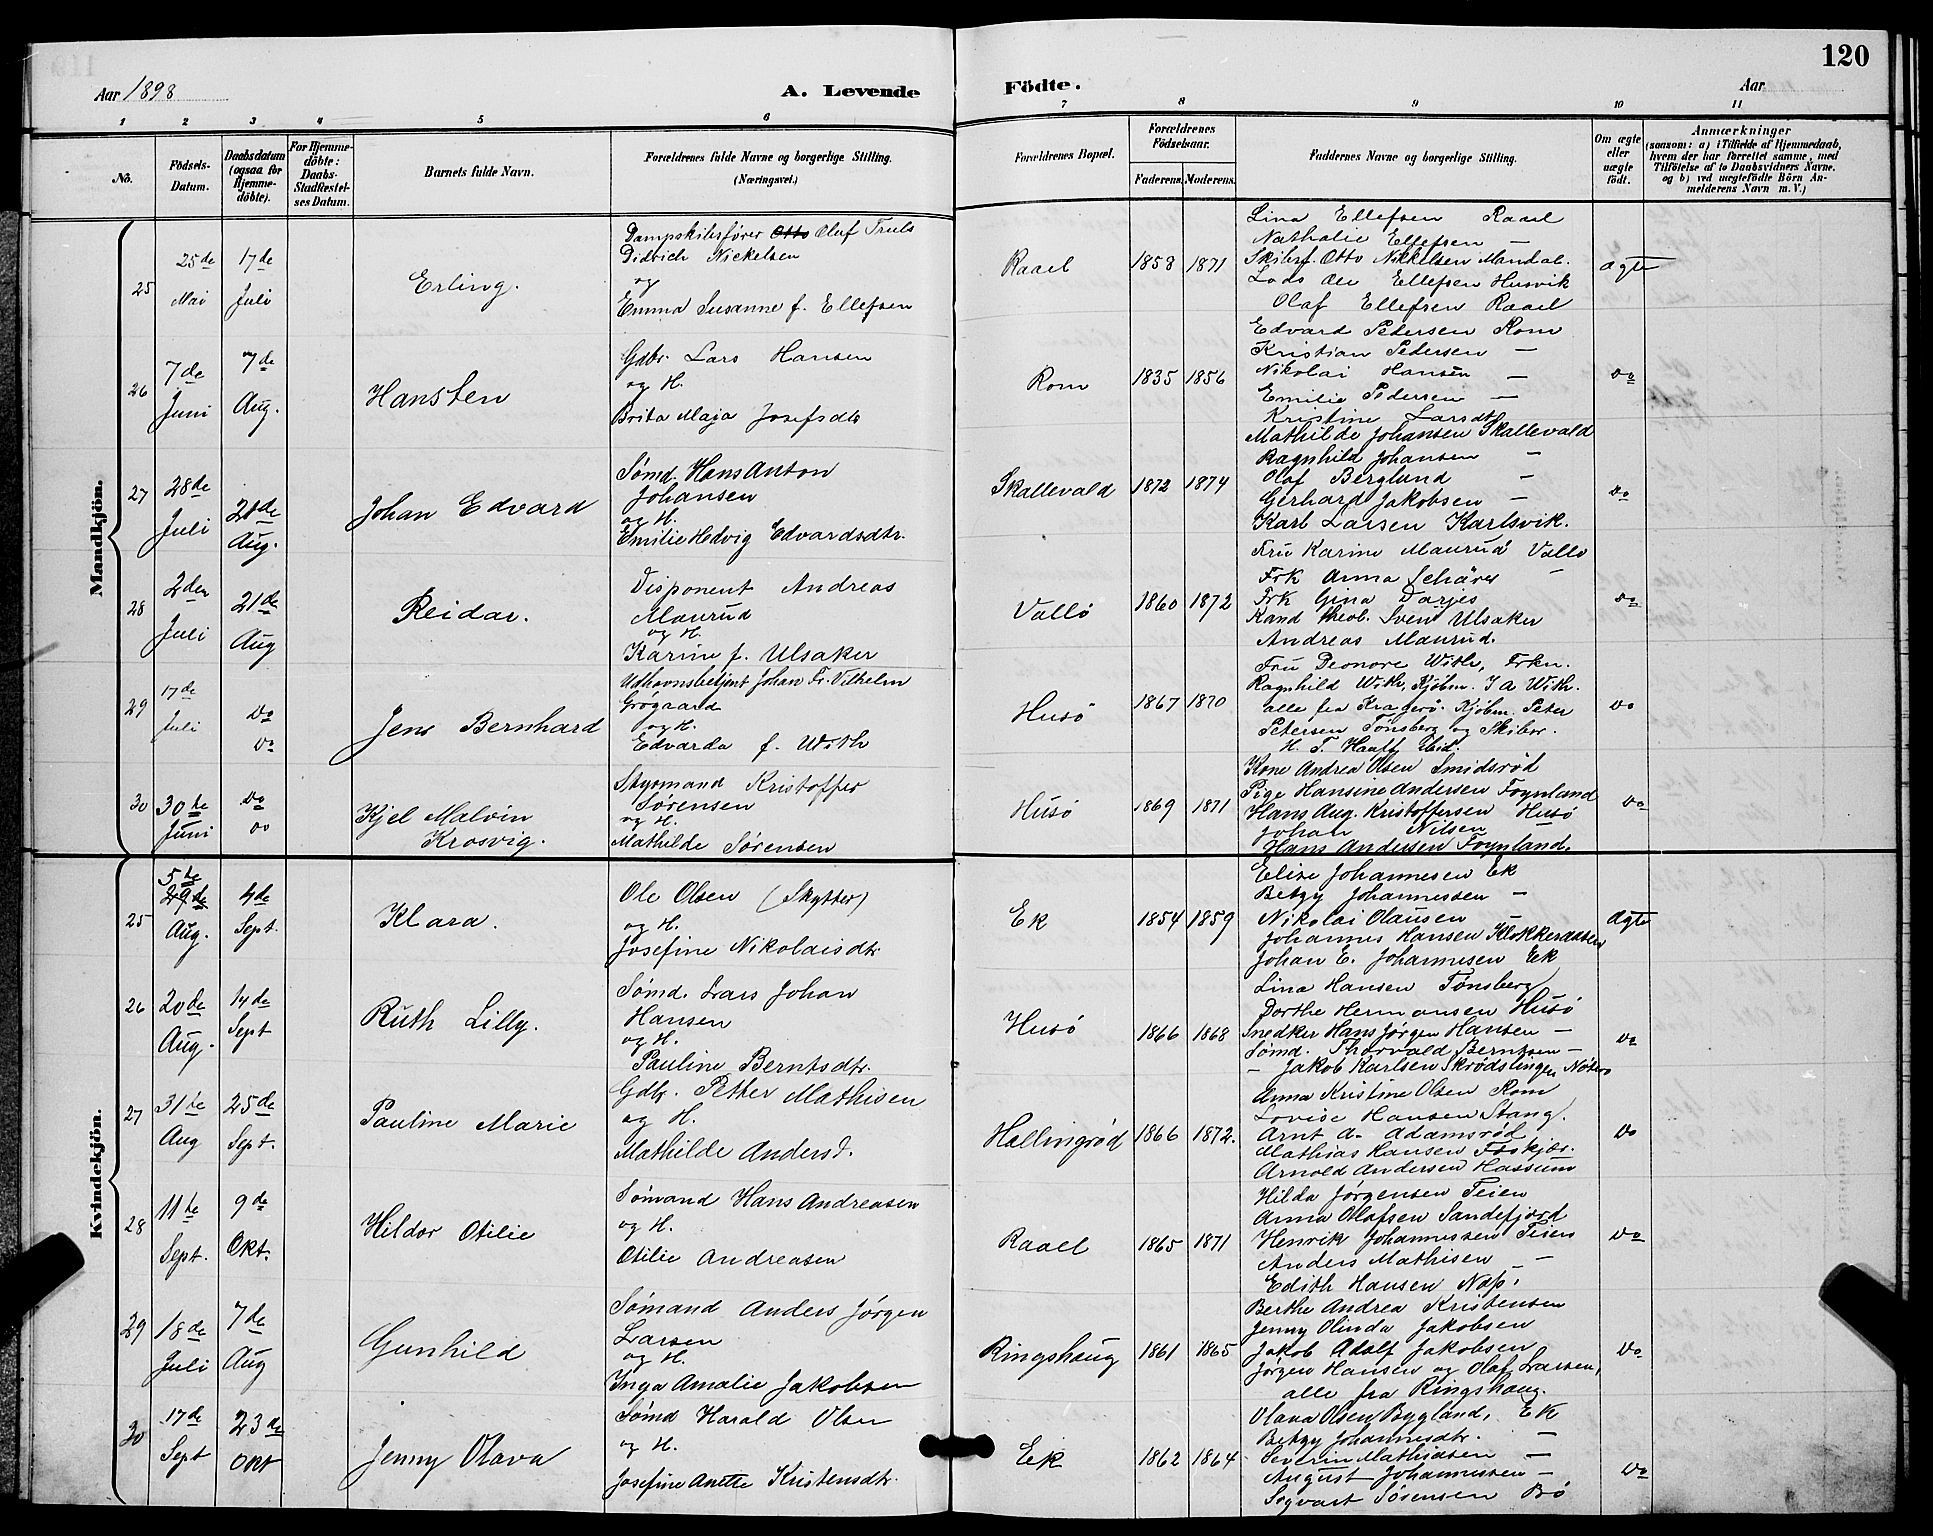 120
Aar 1898
A. Levende
Födte.
Aar
1 2 3 4 5 6 7 8 9 10 11
No.
Födsels-Datum.
Daabsdatum (ogsaa for Hjemmedöbte).
For Hjemmedöbte: Daabs-Stadfestelses Datum.
Barnets fulde Navn.
Forældrenes fulde Navne og borgerlige Stilling. (Næringsvei.)
Forældrenes Bopæl.
Forældrenes Födselsaar.
Faderens. Moderens.
Faddernes Navne og borgerlige Stilling.
Om ægte eller uægte födt.
Anmærkninger
(saasom: a) i Tilfælde af Hjemmedaab,
hvem der har forrettet samme, med
Tilföielse af to Daabsvidners Navne.
og b) ved uægtefödte Börn An-
melderens Navn m. V.)
Mandkjön.
25
25de Mai
17de Juli
Erling.
Dampskibsfører Otto Olaf Truls
Didrich Nickelsen
og
Emma Susanne f. Ellefsen
Raael
1858 1871
Lina Ellefsen Raael
Nathalie Ellefsen —
Skibsf. Otto Nikkelsen Mandal.
Lods Ole Ellefsen Husvik
Olaf Ellefsen Raael
ægte
26
7de Juni
7de Aug.
Hansten
Gdbr. Lars Hansen
og H.
Brita Maja Josefsdtr
Rom
1835 1856
Edvard Pedersen Rom
Kristian Pedersen —
Nikolai Hansen —
Emilie Pedersen —
Kristine Larsdtr
Do
27
28de Juli
21de Aug.
Johan Edvard
Sømd. Hans Anton
Johansen
og H.
Emilie Hedvig Edvardsdtr.
Skallevald
1872 1874
Mathilde Johansen Skallevald
Ragnhild Johansen —
Olaf Berglund —
Gerhard Jakobsen —
Karl Larsen Karlsvik.
Do
28
2den Juli
21de Aug
Reidar.
Disponent Andreas
Maurud
og H.
Karine f. Ulsaker
Vallö
1860 1872
Fru Karine Maurud Vallö
Frk Anna Schärer —
Frk Gina Darjes
Kand theol. Svein Ulsaker
Andreas Maurud.
Do
29
17de Juli
Do
Do
Jens Bernhard
Udhavnsbetjent Johan Fr. Vilhelm
Grøgaard
og H.
Edvarda f. With
Husö
1867 1870
Fru Deonore With, Frkn.
Ragnhild With, Kjöbm. J A With.
alle fra Kragerö. Kjöbm. Peter
Petersen Tönsberg og Skibsr.
H. T. ibid.
Do
30
30te Juni
Do
Do
Kjel Malvin
Krosvig.
Styrmand Kristoffer
Sørensen
og H.
Mathilde Sørensen
Husö
1869 1871
Kone Andrea Olsen Smidsröd
Pige Hansine Andersen Föynland
Hans Aug. Kristoffersen Husö
Johan Nilsen
Hans Andersen Föynland.
Do
Kvindekjön.
25
5te
29de Aug.
4de Sept.
Klara.
Ole Olsen (Skytter)
og H.
Josefine Nikolaisdtr
Ek
1854 1859
Elise Johannesen Ek
Betzy Johannessen —
Nikolai Olausen
Johannes Hansen Klokkeraasen
Johan E. Johannesen Ek
Ægte
26
20de Aug.
14de Sept
Ruth Lilly.
Sømd. Lars Johan
Hansen
og H.
Pauline Berntsdtr.
Husö
1866 1868
Lina Hansen Tönsberg
Dorthe Hermansen Husö
Snedker Hans Jörgen Hansen —
Sømd. Thorvald Berntsen —
— Jakob Karlsen Skrödslingen Nöterö
Do
27
31te Aug
25de Sept.
Pauline Marie
Gdbr. Petter Mathisen
og H.
Mathilde Andersd.
Hallingröd
1866 1872.
Anna Kristine Olsen Rom
Lovise Hansen Stang.
Arnt A. Adamsröd
Mathias Hansen Eskjær.
Arnold Andersen Hassum
Do
28
11te Sept.
9de Okt.
Hildor Otilie
Sömand Hans Andreasen
og H.
Otilie Andreasen
Raael
1865 1871
Hilda Jörgensen Teien
Anna Olafsen Sandefjord
Henrik Johannessen Teien
Anders Mathisen —
Edith Hansen Nas.
Do
29
18de Juli
7de Aug
Gunhild
Sömand Anders Jörgen
Larsen
og H.
Inga Amalie Jakobsen
Ringshaug
1861 1865
Berthe Andrea Kristensen
Jenny Olinda Jakobsen
Jakob Adolf Jakobsen
Jörgen Hansen og Olaf Larsen,
alle fra Ringshaug.
Do
30
17de Sept
23de Okt
Jenny Olava
Sømd Harald Olsen
og H.
Josefine Anette Kristensdtr.
Ek
1862 1864
Olava Olsen Bygland, Ek
Betzy Johannesdtr. —
Severin Mathiasen —
August Johannessen —
Segvart Sörensen Bö
Do